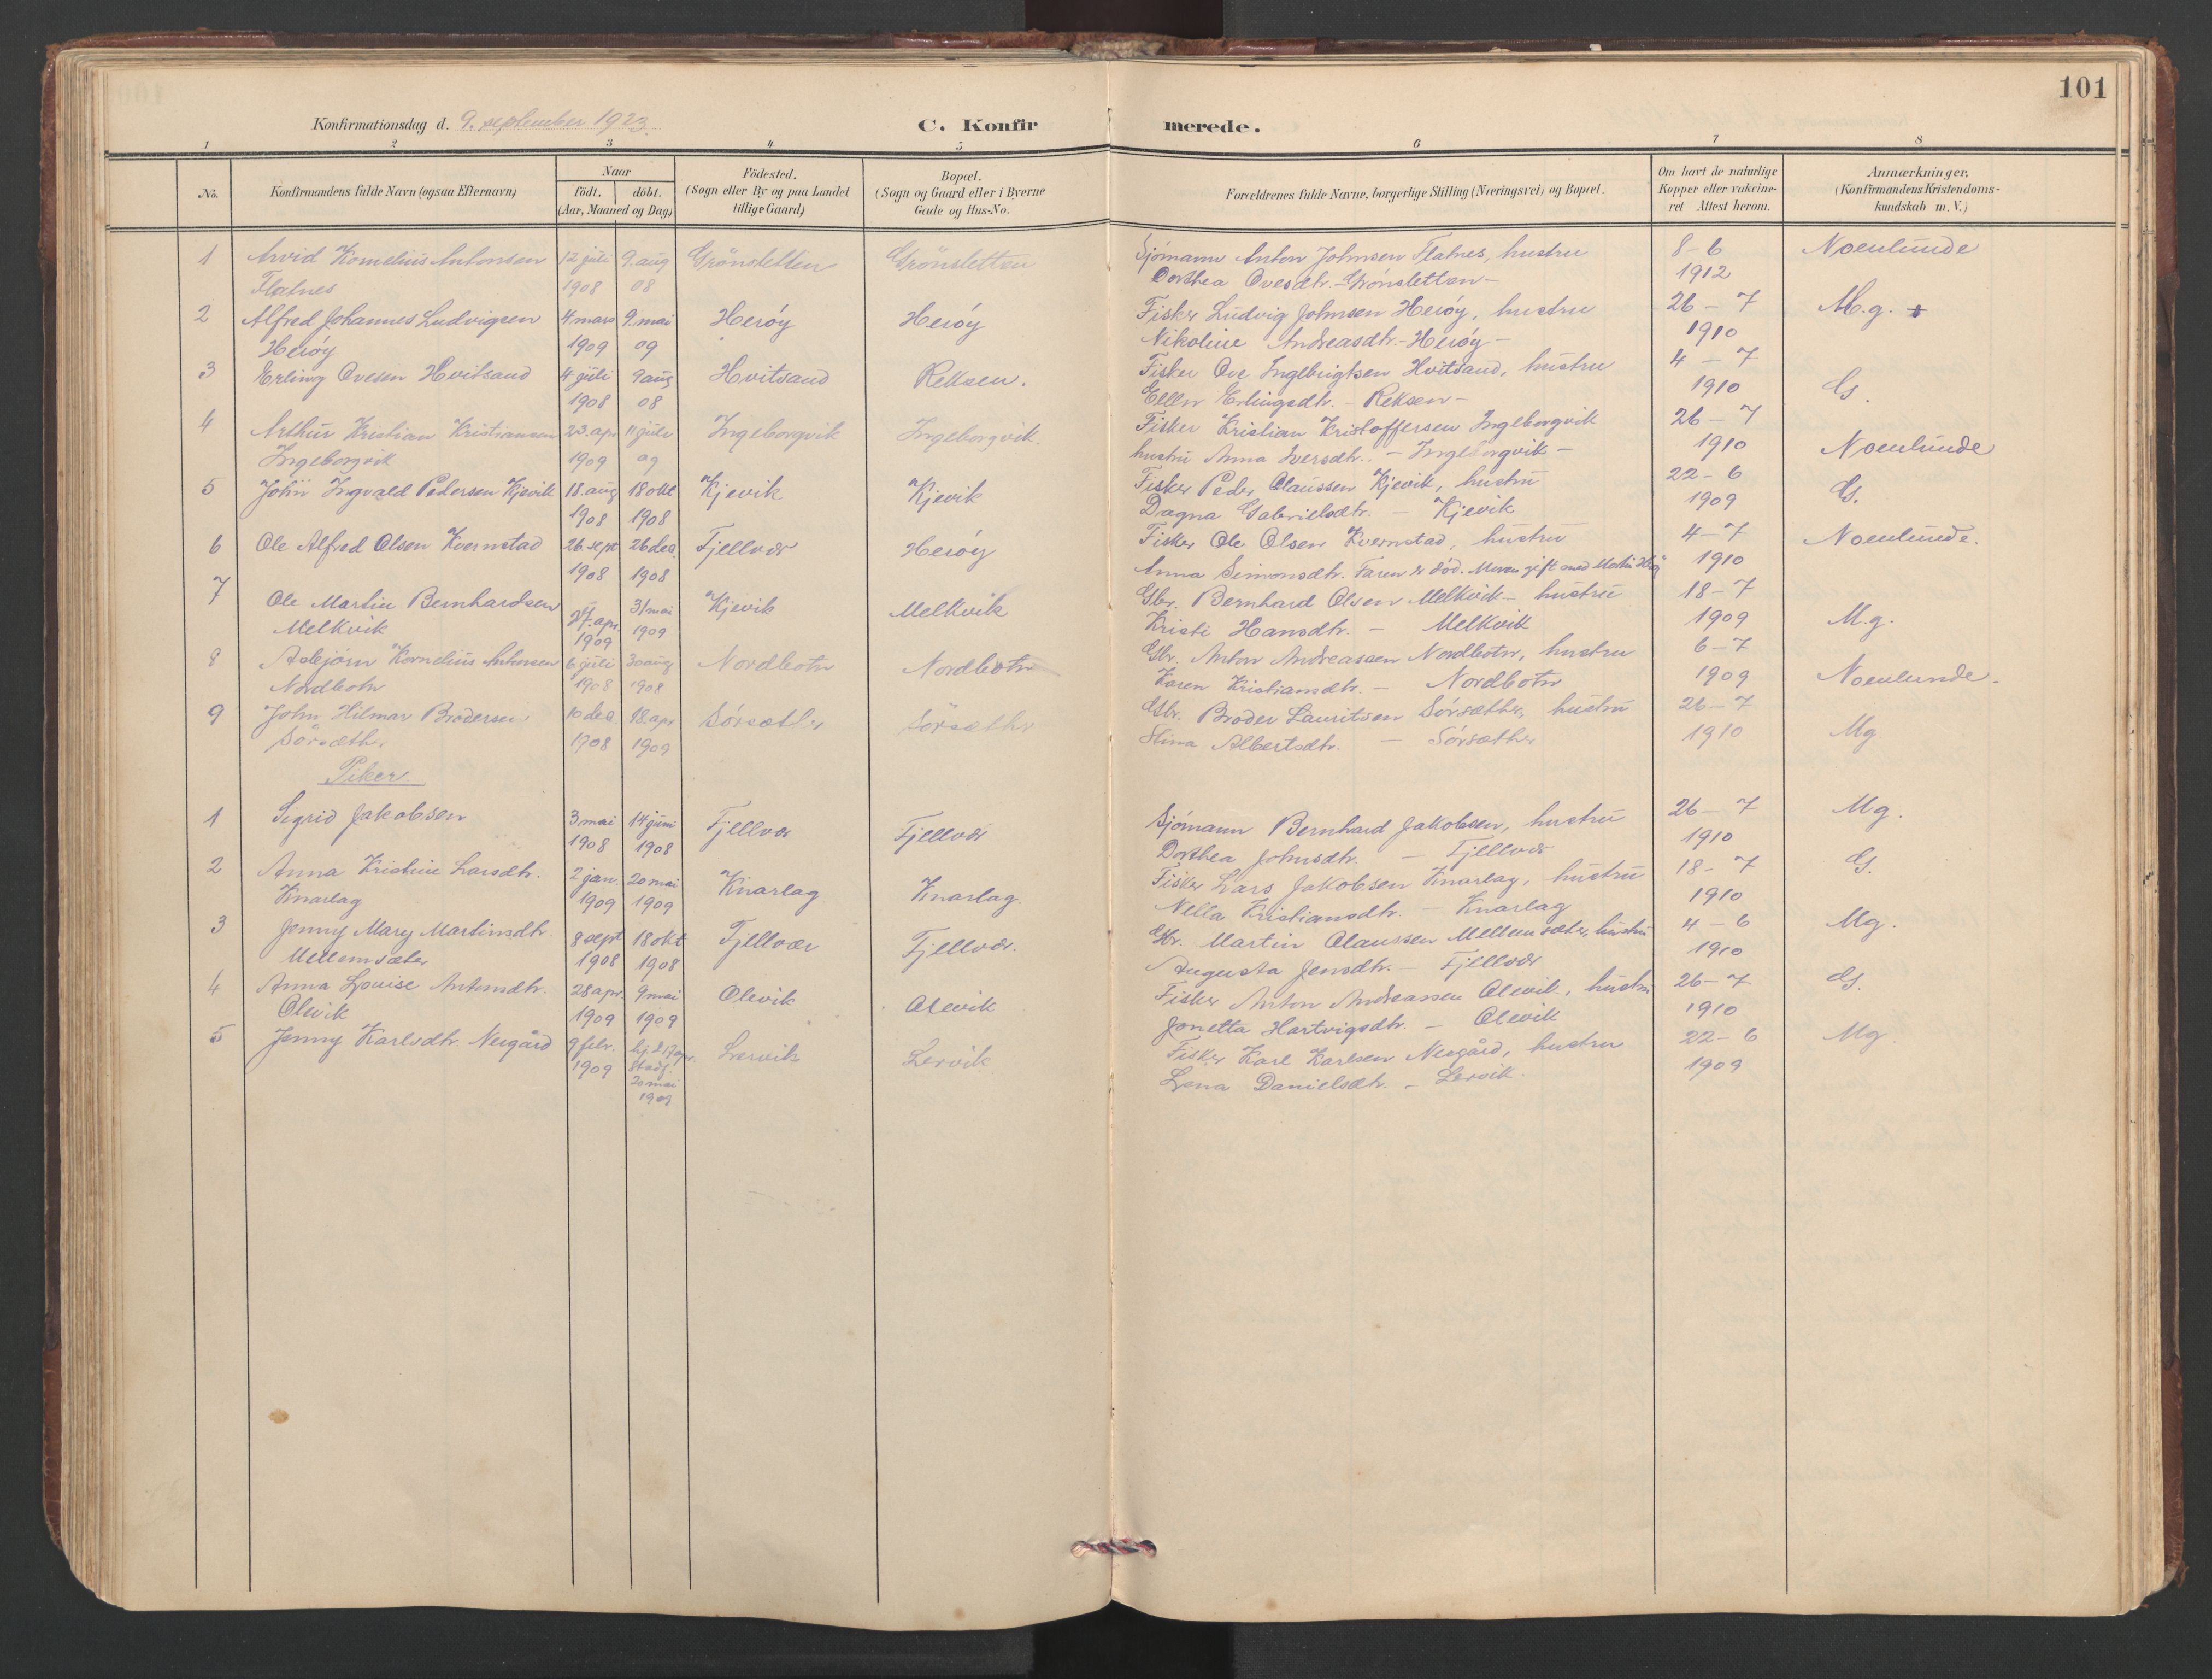 101
Konfirmationsdag d. 9. september 1923.
C. Konfirmerede.
1 2 3 4 5 6 7 8
No.
Konfirmandens fulde Navn (ogsaa Efternavn)
Naar
födt. döbt.
(Aar, Maaned og Dag)
Födested.
(Sogn eller By og paa Landet
tillige Gaard)
Bopæl.
(Sogn og Gaard eller i Byerne
Gade og Hus-No.
Forældrenes fulde Navne, borgerlige Stilling (Næringsvei) og Bopæl.
Om havt de naturlige
Kopper eller vakcine-
ret Attest herom.
Anmærkninger,
(Konfirmandens Kristendoms-
kundskab m. V.)
1 Arvid Kornelius Antonsen 12 juli 9. aug Grönsletten Grönsletten Sjömann Anton Johnsen Flatnes, hustru 8-6 Noenlunde
Flatnes 1908 08 Dorthea Ovesdtr. - Grönsletten - 1912
2 Alfred Johannes Ludvigsen 4 mars 9. mai Heröy Heröy Fisker Ludvig Johnsen Heröy, hustru 26-7 M.g. +
Heröy 1909 09 Nikoline Andreasdtr. - Heröy - 1910
3 Erling Ovesen Hvitsand 4 juli 9 aug Hvitsand Reksen. Fisker Ove Ingebrigtsen Hvitsand, hustru 4-7 G.
1908 08 Ellen Erlingsdtr. - Reksen - 1910
4 Arthur Kristian Kristiansen 23. apr 11 juli Ingeborgvik Ingeborgvik. Fisker Kristian Kristoffersen Ingeborgvik 26-7 Noenlunde
Ingeborgvik 1909 09 hustru Anna Iversdtr. - Ingeborgvik - 1910
5 John Ingvald Pedersen Kjevik 18. aug 18 okt Kjevik Kjevik Fisker Peder Claussen Kjevik, hustru 22-6 G.
1908 1908 Dagna Gabrielsdtr. - Kjevik 1909
6 Ole Alfred Olsen Kvernstad 26. sept 26 dec. Fjellvær Heröy Fisker Ole Olsen Kvernstad, hustru 4-7 Noenlunde.
1908 1908 Anna Simonsdtr. Faren er död. Moren gift med 1910
7 Ole Martin Bernhardsen 27. apr. 31 mai Kjevik Melkvik Gbr. Bernhard Olsen Melkvik - hustru 18-7 M.g.
Melkvik 1909 1909 Kristi Hansdtr. - Melkvik 1909
8 Asbjörn Kornelius Antonsen 6 juli 30 aug Nordbotn Nordbotn Gbr. Anton Andreassen Nordbotn, hustru 6-7 Noenlunde.
Nordbotn 1908 1908 Karen Kristiansdtr. - Nordbotn 1909
9 John Hilmar Brodersen 10 dec. 18. apr Sörsæther Sörsæther Gbr. Broder Lauritsen Sörsæther, hustru 26-7 Mg.
Sörsæth. 1908 1909 Stina Albertsdtr. - Sörsæther 1910
Piker
1 Sigrid Jakobsen 3. mai 14 juni Fjellvær Fjellvær Sjömann Bernhard Jakobsen, hustru 26-7 Mg.
1908 1908 Dorthea Johnsdtr. - Fjellvær 1910
2 Anna Kristine Larsdtr. 2 jan. 20 mai Knarlag Knarlag. Fisker Lars Jakobsen Knarlag, hustru 18-7 G.
Knarlag 1909 1909 Nella Kristiansdtr. - Knarlag 1910
3 Jenny Mary Martinsdtr. 8 sept 18 okt Fjellvær Fjellvær. Gbr. Martin Olaussen Mellemsæter, hustru 4-6 Mg.
Mellemsæter 1908 1908 Augusta Jensdtr. - Fjellvær 1910
4 Anna Lovise Antondtr. 28 apr. 9 mai Olevik Olevik Fisker Anton Andreassen Olevik, hustru 26-7 G.
Olevik 1909 1909 Jonetta Hartvigsdtr. - Olevik 1910
5 Jenny Karlsdtr. Nesgård 9 febr. hj.d. 17 apr. Lervik Lervik Fisker Karl Karlsen Nesgård, hustru 22-6 Mg.
1909 Stadf. Lena Danielsdtr. - Lervik. 1909
20 mai
1909